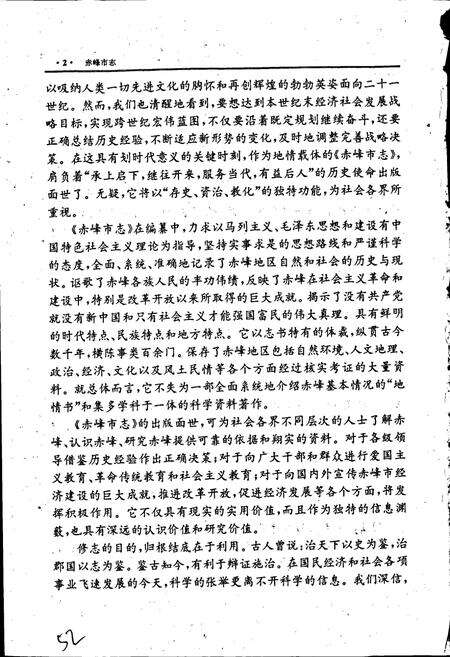 ·2· 赤峰市志
以吸纳人类一切先进文化的胸怀和再创辉煌的勃勃英姿面向二十一
世纪。然而,我们也清醒地看到,要想达到本世纪末经济社会发展战
略目标,实现跨世纪宏伟蓝图,不仅要沿着既定规划继续奋斗,还要
正确总结历史经验,不断适应新形势的变化,及时地调整完善战略决
策。在这具有划时代意义的关键时刻,作为地情载体的《赤峰市志》,
肩负着“承上启下,继往开来,服务当代,有益后人”的历史使命出版
面世了。无疑,它将以“存史、资治、教化”的独特功能,为社会各界所
重视。
《赤峰市志》在编纂中,力求以马列主义、毛泽东思想和建设有中
国特色社会主义理论为指导,坚持实事求是的思想路线和严谨科学
的态度,全面、系统、准确地记录了赤峰地区自然和社会的历史与现
状。讴歌了赤峰各族人民的丰功伟绩,反映了赤峰在社会主义革命和
建设中,特别是改革开放以来所取得的巨大成就。揭示了没有共产党
就没有新中国和只有社会主义才能强国富民的伟大真理。具有鲜明
的时代特点、民族特点和地方特点。它以志书特有的体裁,纵贯古今
数千年,横陈事类百余门。保存了赤峰地区包括自然环境、人文地理、
政治、经济、文化以及风土民情等各个方面经过核实考证的大量资
料。就总体而言,它不失为一部全面系统地介绍赤峰基本情况的“地
情书”和集多学科于一体的科学资料著作。
《赤峰市志》的出版面世,可为社会各界不同层次的人士了解赤
峰、认识赤峰、研究赤峰提供可靠的依据和翔实的资料。对于各级领
导借鉴历史经验作出正确决策;对于向广大干部和群众进行爱国主
义教育、革命传统教育和社会主义教育;对于向国内外宣传赤峰市经
济建设的巨大成就,推进改革开放,促进经济发展等各个方面,将发
挥积极作用。它不仅具有现实的实用价值,而且作为独特的信息渊
薮,也具有深远的认识价值和研究价值。
修志的目的,归根结底在于利用。古人曾说:治天下以史为鉴,治
郡国以志为鉴。鉴古知今,有利于辩证施治。在国民经济和社会各项
事业飞速发展的今天,科学的张举更离不开科学的信息。我们深信,
52